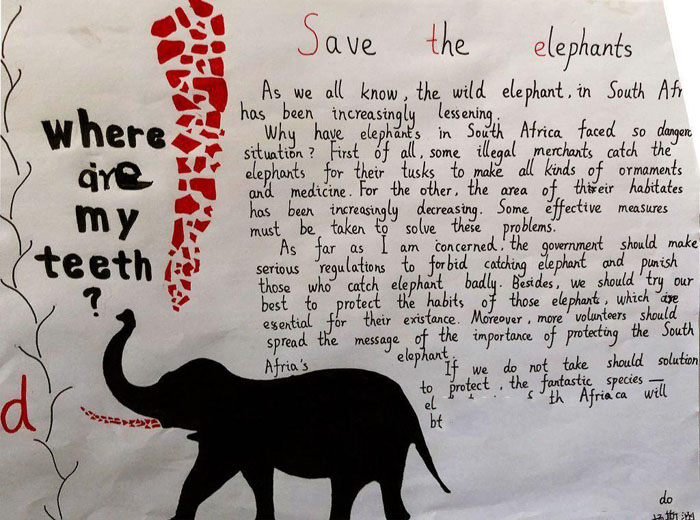 Save the elephants
where
are
my
teeth
?
As we all know, the wild elephant, in South Afr
has been increasingly lessening.
Why have elephants in South Africa faced so danger
situation? First of all, some illegal merchants catch the
elephants for their tusks to make all kinds of ornaments
and medicine. For the other, the area of their habitates
has been increasingly decreasing. Some effective measures
must be taken to solve these problems.
As far as I am concerned, the government should make
serious regulations to forbid catching elephant and punish
those who catch elephant badly. Besides, we should try our
best to protect the habits of those elephant, which are
esential for their existance. Moreover, more volunteers should
spread the message of the importance of protecting the South
Afria's elephant.
If we do not take should solution
to protect, the fantastic species —
el th Afriaca will
bt
d
do